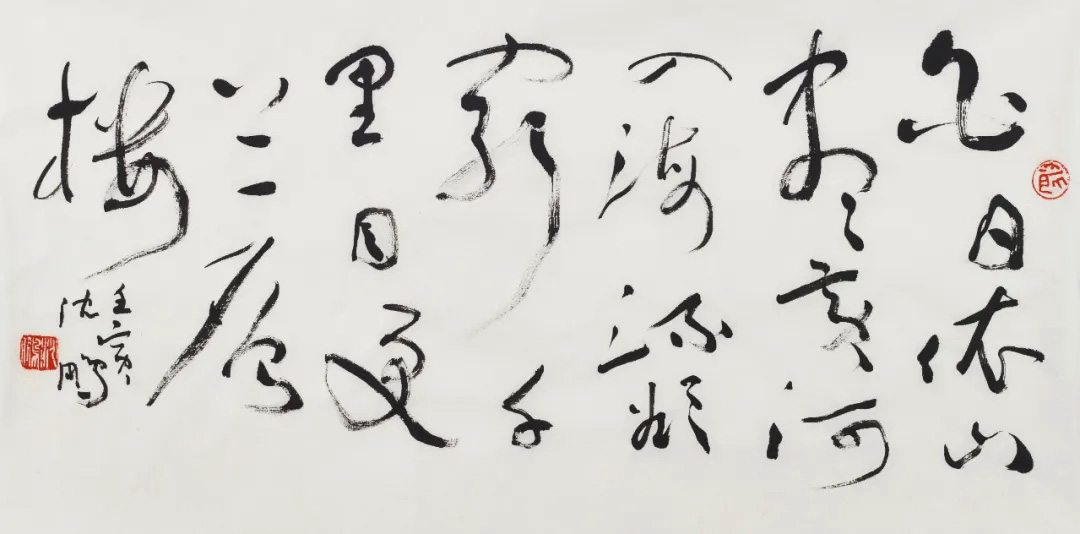 白日依山
尽黄河
入海流欲
窮千
里目更
上一層
樓
壬寅
沈鵬